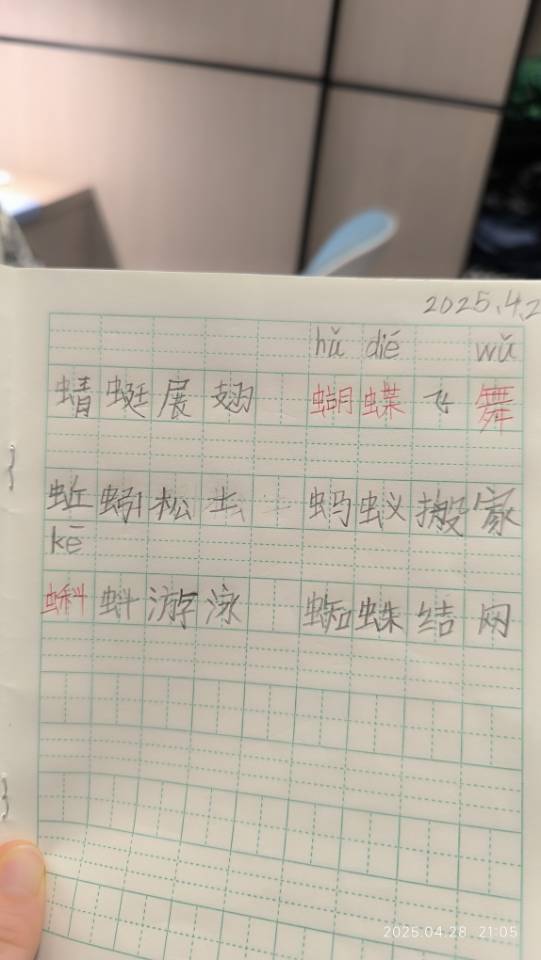 2025.4.2
hú dié wǔ
蜻蜓展翅 蝴蝶飞舞
蚯蚓松土 蚂蚁搬家
kē
蝌蚪游泳 蜘蛛结网
2025.04.28 21:05